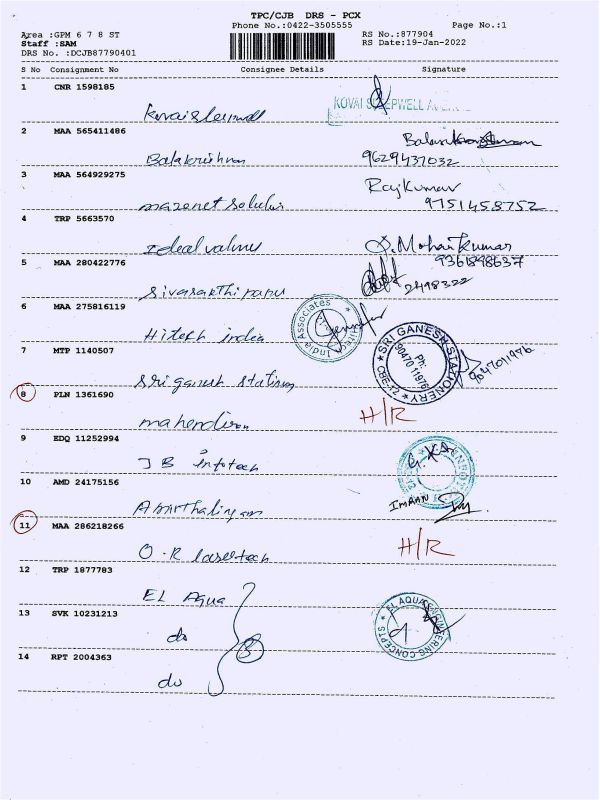 TPC/CJB DRS - PCX
Area :GPM 6 7 8 ST Phone No.:0422-3505555 Page No.:1
Staff :SAM RS No.:877904
DRS No. :DCJB87790401 RS Date:19-Jan-2022
S No Consignment No Consignee Details Signature
1 CNR 1598185
KOVAI SLEEPWELL
2 MAA 565411486
Balakrishnan 9629437032
3 MAA 564929275 Rajkumar
mazenet 9751458752
4 TRP 5663570
Ideal valves S. Mohan Kumar
5 MAA 280422776 9361898637
Sivasakthi papers 2498322
6 MAA 275816119
Hitesh India Hitesh India Associates
7 MTP 1140507
Sri ganesh SRI GANESH STATIONERY CBE-12 Ph: 90470 11976 9047011976
8 PLN 1361690
mahendiran H/R
9 EDQ 11252994
JB Infotech
10 AMD 24175156
Amirthalingam IMRAN
11 MAA 286218266
O.R lasertech H/R
12 TRP 1877783
EL Aqua
13 SVK 10231213
do 3 EL AQUA ENGINEERING CONCEPTS
14 RPT 2004363
do